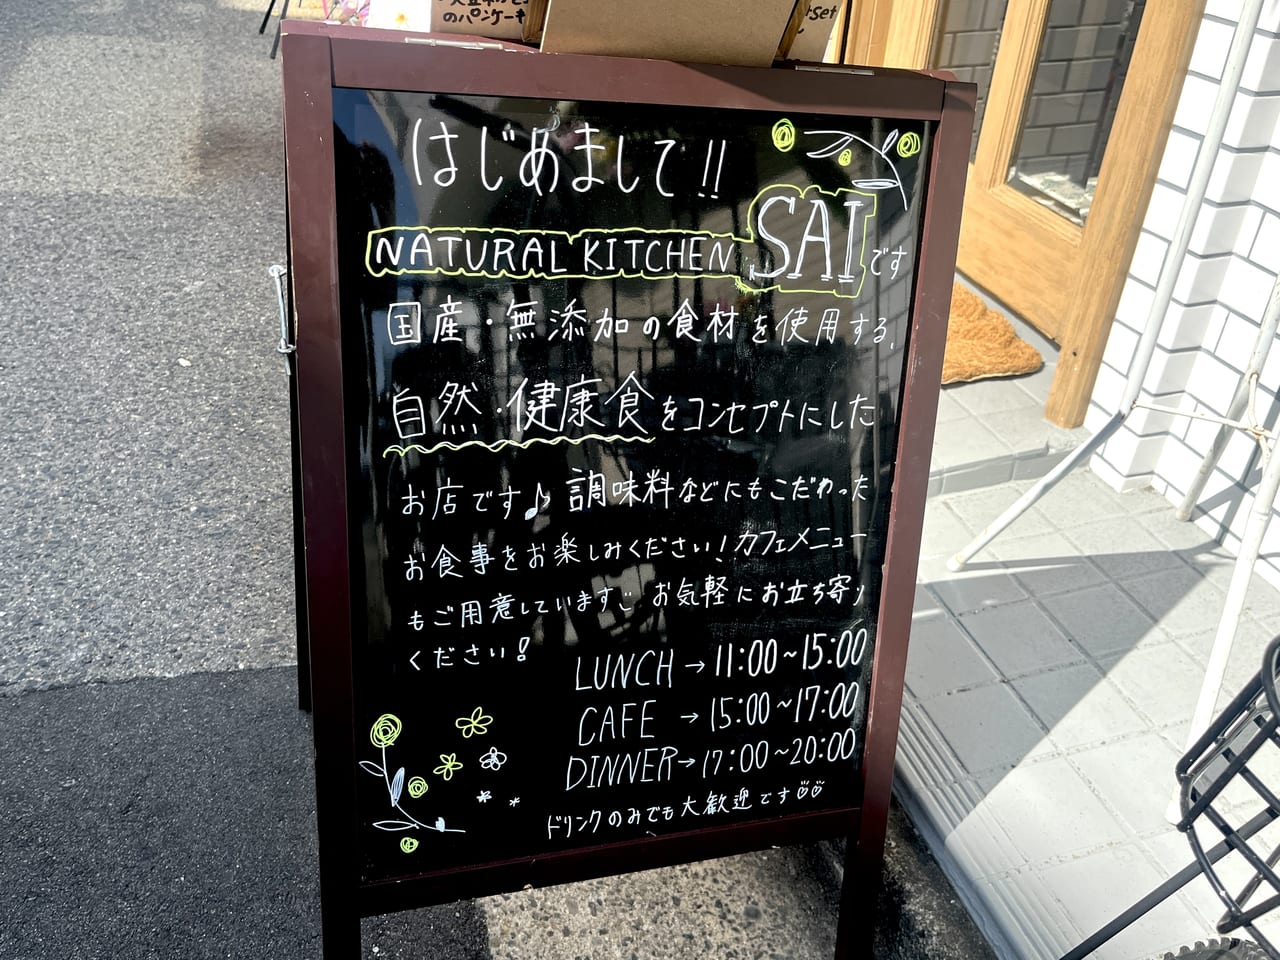 のパンケーキ
はじめまして!!
NATURAL KITCHEN SAIです
国産・無添加の食材を使用する、
自然・健康食をコンセプトにした
お店です♪ 調味料などにもこだわった
お食事をお楽しみください!カフェメニュー
もご用意しています。お気軽にお立ち寄り
ください!
LUNCH→11:00~15:00
CAFE →15:00~17:00
DINNER→17:00~20:00
ドリンクのみでも大歓迎です